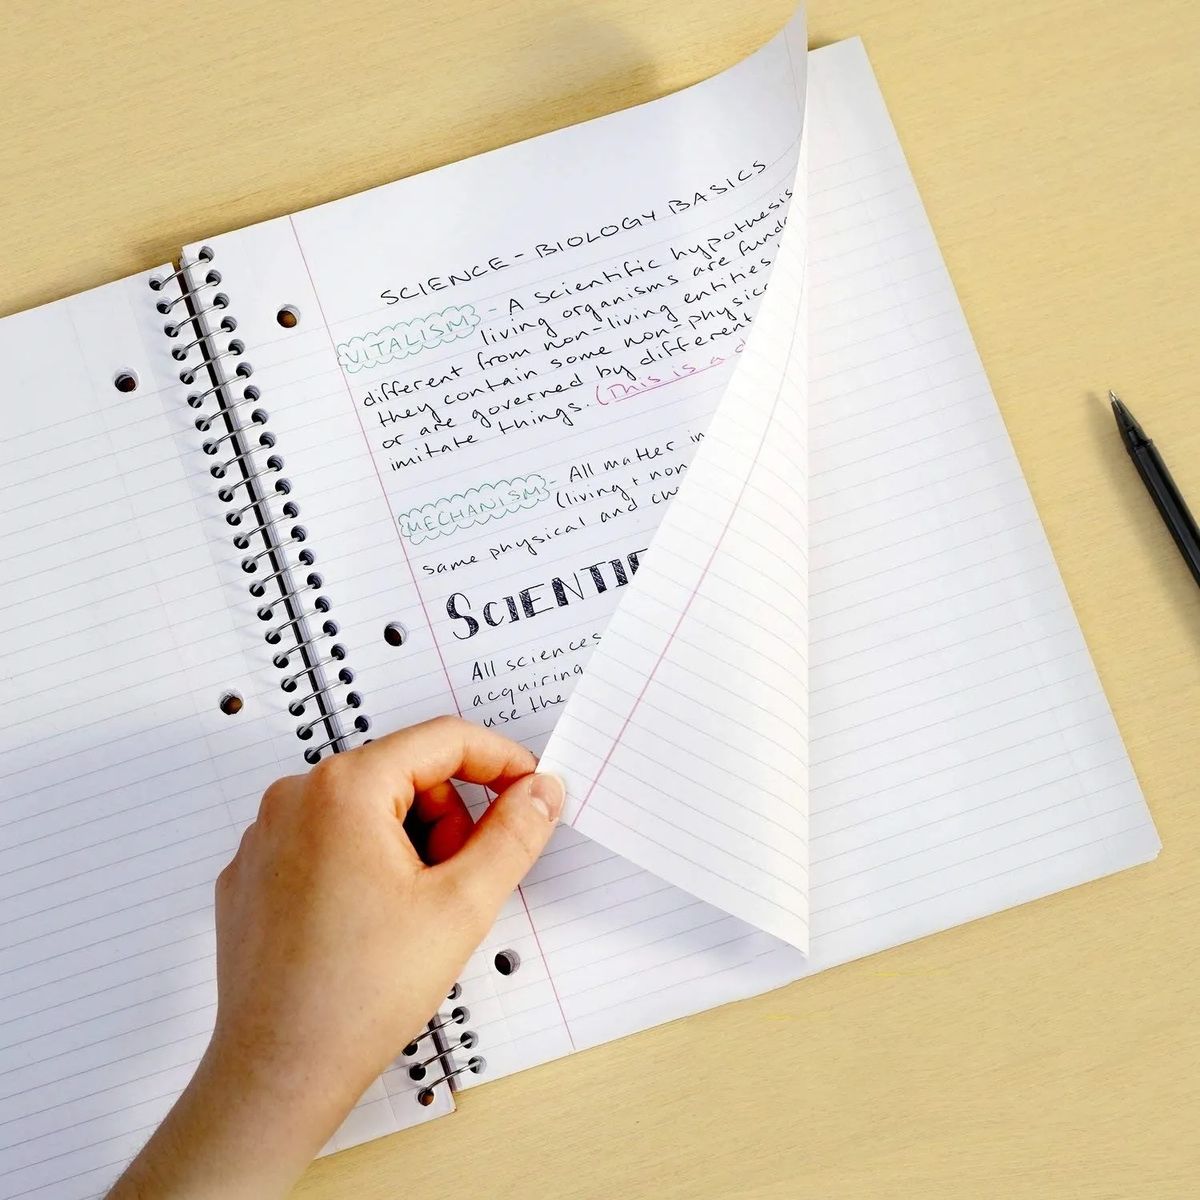 SCIENCE - BIOLOGY BASICS
VITALISM - A scientific hypothesis
living organisms are fund
different from non-living entities
they contain some non-physic
or are governed by different
imitate things. (This is a d
MECHANISM - All matter in
(living + non
same physical and
SCIENTIF
All sciences
acquiring
use the